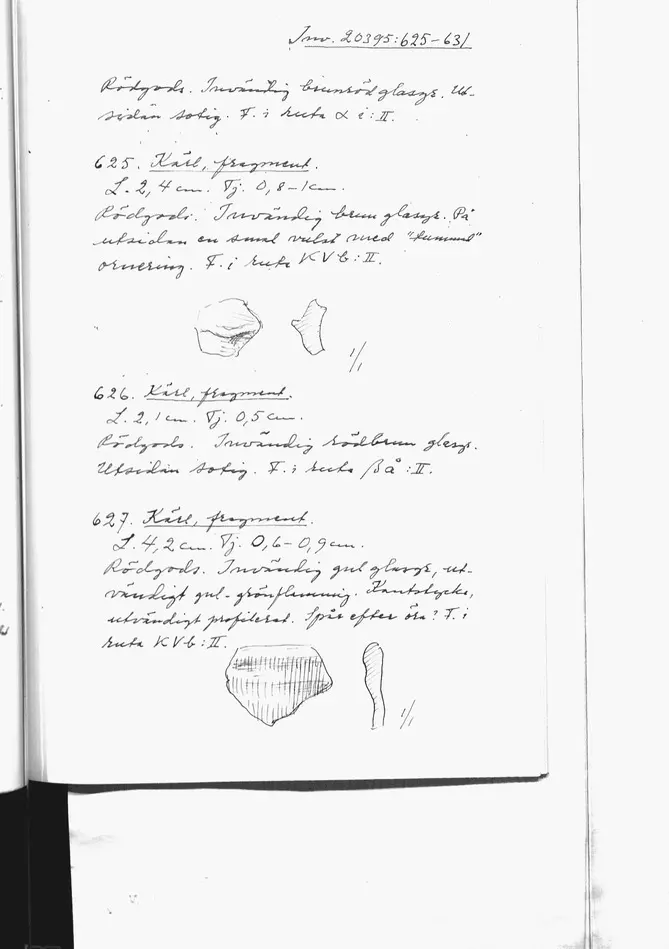 Inv. 20395:625-631
Rödgods. Invändig brunröd glasyr. Ut-
sidan sotig. F. i ruta α i : II.
625. Kärl, fragment.
L. 2,4 cm. Tj. 0,8-1 cm.
Rödgods. Invändig brun glasyr. På
utsidan en smal vulst med "tummad"
ornering. F. i ruta KVb : II.
1/1
626. Kärl, fragment.
L. 2,1 cm. Tj. 0,5 cm.
Rödgods. Invändig rödbrun glasyr.
Utsidan sotig. F. i ruta βå : II.
627. Kärl, fragment.
L. 4,2 cm. Tj. 0,6-0,9 cm.
Rödgods. Invändig gul glasyr, ut-
vändigt gul-grönflammig. Kantstycke,
utvändigt profilerat. Spår efter öra? F. i
ruta KVb : II.
1/1